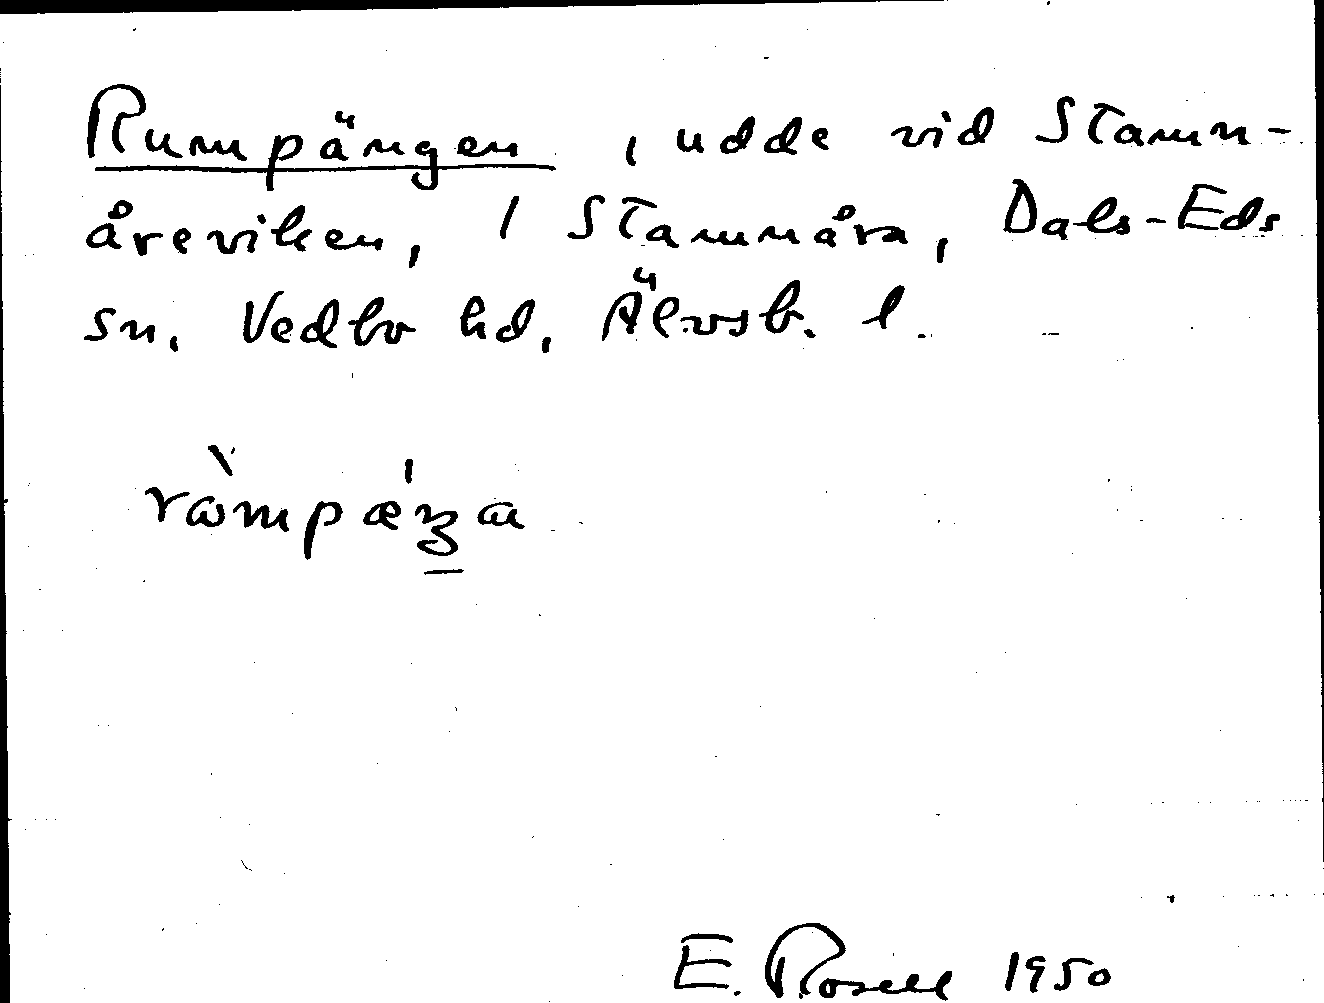 Rumpängen, udde vid Stamn-
åreviken, 1 Stamnåra, Dals-Eds
sn. Vedbo hd. Älvsb. l.
E. Rosell 1950